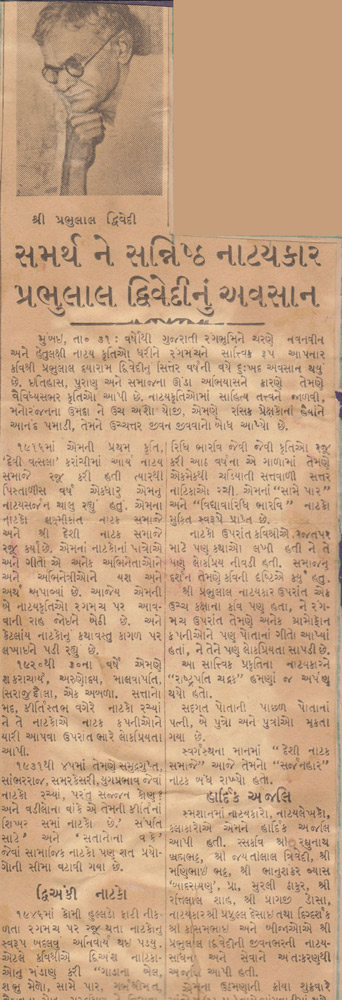 શ્રી પ્રભુલાલ દ્વિવેદી
સમર્થ ને સન્નિષ્ઠ નાટયકાર
પ્રભુલાલ દ્વિવેદીનું અવસાન
મુંબઇ, તા૦ ૩૧ : વર્ષોથી ગુજરાતી રંગભૂમિને ચરણે નવનવીન
અને હેતુલક્ષી નાટય કૃતિઓ ધરીને રંગમંચને સાત્ત્વિક રૂપ આપનાર
કવિશ્રી પ્રભુલાલ દયારામ દ્વિવેદીનું સિત્તેર વર્ષની વયે દુઃખદ અવસાન થયું
છે. ઇતિહાસ, પુરાણ અને સમાજના ઊંડા અભિયાસને કારણે તેમણે
વૈવિધ્યસભર કૃતિઓ આપી છે. નાટયકૃતિઓમાં સાહિત્ય તત્ત્વને જાળવી,
મનોરંજનના ઉમદા ને ઉચ્ચ અંશો યોજી, એમણે રસિક પ્રેક્ષકોનાં હૈયાંને
આનંદ પમાડી, તેમને ઉચ્ચત્તર જીવન જીવવાનો બોધ આપ્યો છે.
૧૯૧૬માં એમની પ્રથમ કૃતિ,
'દેવી વત્સલા' કરાંચીમાં આર્ય નાટય
સમાજે રજૂ કરી હતી ત્યારથી
પિસ્તાળીસ વર્ષ એકધારું એમનું
નાટયસર્જન ચાલુ રહ્યું હતું. એમનાં
નાટકો લક્ષ્મીકાંત નાટક સમાજે
અને શ્રી દેશી નાટક સમાજે
રજૂ કર્યાં છે. એમનાં નાટકોનાં પાત્રોએ
અને ગીતોએ અનેક અભિનેતાઓને
અને અભિનેત્રીઓને યશ અને
અર્થ અપાવ્યાં છે. આજેય એમની
બે નાટયકૃતિઓ રંગમંચ પર આવ-
વાની રાહ જોઇને બેઠી છે. અને
કેટલાંય નાટકોનું કથાવસ્તુ કાગળ પર
લખાઇને પડી રહ્યું છે.
૧૯૨૦થી ૩૦નાં વર્ષે એમણે
શંકરાચાર્ય, અરુણોદય, માલવપતિ,
સિરાજદ્દૌલા, એક અબળા, સત્તાનો
મદ, કીર્તિસ્તંભ વગેરે નાટકો રચ્યાં
ને તે નાટકોએ નાટક કંપનીઓને
યારી આપવા ઉપરાંત ભારે લોકપ્રિયતા
આપી.
૧૯૩૧થી ૪૫માં તેમણે સમુદ્રગુપ્ત,
સાંભરરાજ, સમરકેસરી, યુગપ્રભાવ જેવાં
નાટકો રચ્યાં, પરંતુ સજ્જન કોણ?
અને વડીલોના વાંકે એ તેમની કીર્તિનાં
શિખર સમાં નાટકો છે. ' સંપત્તિ
માટે ' અને ' સંતાનોના વાંકે '
જેવાં સામાજિક નાટકો પણ રાત પ્રયો-
ગોની સીમા વટાવી ગયાં છે.
દ્વિઅંકી નાટકો
૧૯૪૬માં કોમી હુલ્લડો ફાટી નીક-
ળતાં રંગમંચ પર રજૂ થતાં નાટકોનું
સ્વરૂપ બદલવું અનિવાર્ય થઇ પડયું.
એટલે કવિશ્રીએ દ્વિઅંકી નાટકો-
ઓનું મંડાણ કર્યું " ગાડાનો બેલ,
શંભુ મેળો, સામે પાર,
રિધિ ભારવિ જેવી જેવી કૃતિઓ રજૂ
કરી આઠ વર્ષના એ ગાળામાં તેમણે
એકમેકથી ચડિયાતી સત્તાવાળી સત્તર
નાટિકાઓ રચી. એમનાં "સામે પાર"
અને "વિદ્યાવારિધિ ભારવિ" નાટકો
મુદ્રિત સ્વરૂપે પ્રાપ્ત છે.
નાટકો ઉપરાંત કવિશ્રીએ રજતપટ
માટે પણ કથાઓ લખી હતી ને તે
પણ લોકપ્રિય નીવડી હતી. સમાજનું
દર્શન તેમણે કવિની દૃષ્ટિએ કર્યું હતું.
શ્રી પ્રભુલાલ નાટયકાર ઉપરાંત એક
ઉચ્ચ કક્ષાના કવિ પણ હતા, ને રંગ-
મંચ ઉપરાંત તેમણે અનેક ગ્રામોફોન
કંપનીઓને પણ પોતાનાં ગીતો આપ્યાં
હતાં, ને તેને પણ લોકપ્રિયતા સાંપડી છે.
આ સાત્ત્વિક પ્રકૃતિના નાટયકારને
"રાષ્ટ્રપતિ ચંદ્રક" હમણાં જ અર્પણ
થયો હતો.
સદ્દગત પોતાની પાછળ પોતાનાં
પત્ની, બે પુત્રો અને પુત્રીઓ મૂકતા
ગયા છે.
સ્વર્ગસ્થના માનમાં "દેશી નાટક
સમાજે" આજે તેમનો "સર્જનહાર"
નાટક બંધ રાખ્યો હતો.
હાર્દિક અંજલિ
સ્મશાનમાં નાટયકારો, નાટયલેખકો,
કલાકારોએ એમને હાર્દિક અંજલિ
આપી હતી. રસકવિ શ્રી રઘુનાથ
બ્રહ્મભટ્ટ, શ્રી જયંતીલાલ ત્રિવેદી, શ્રી
મણિભાઇ ભટ્ટ, શ્રી ભાનુશંકર વ્યાસ
'બાદરાયણ', પ્રો. મુરલી ઠાકુર, શ્રી
રતિલાલ શાહ, શ્રી પ્રાગજી ડોસા,
નાટયકાર શ્રી પ્રફુલ્લ દેસાઇ તથા દિગ્દર્શક
શ્રી કાસમભાઇ અને બીજાઓએ શ્રી
પ્રભુલાલ દ્વિવેદીની જીવનભરની નાટય-
સાધના અને સેવાને અંતઃકરણથી
અંજલિ આપી હતી.